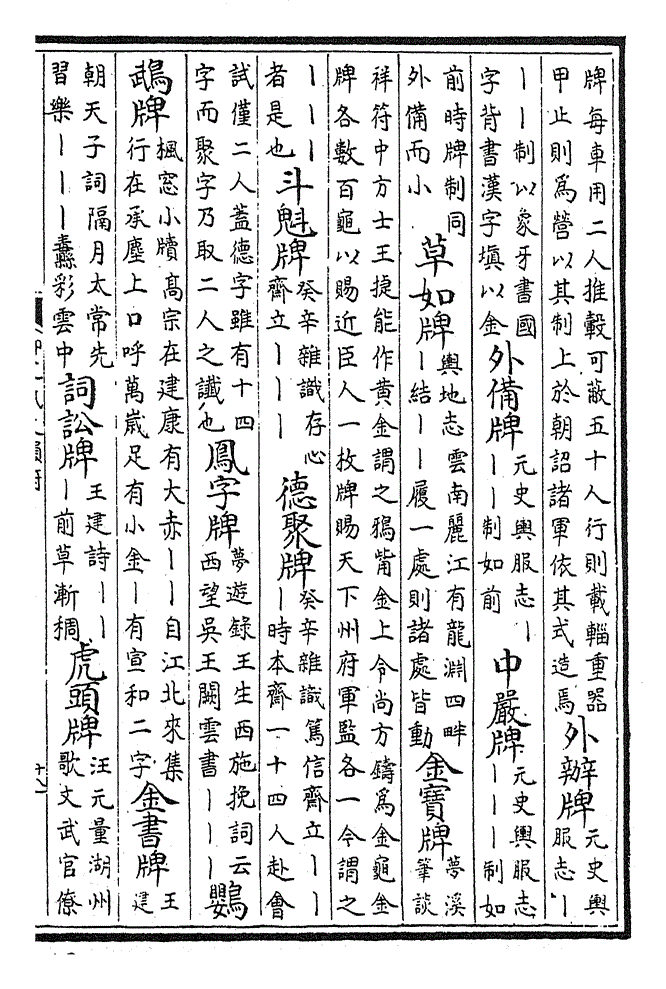 牌每車用二人推轂可蔽五十人行則載輜重器甲止則為營以其制上於朝詔諸軍依其式造焉外辦牌元史輿服志丨
丨丨制以象牙書國字背書漢字填以金外備牌元史輿服志丨丨丨制如前中嚴牌元史輿服志丨丨丨制如
前時牌制同外備而小草如牌輿地志雲南麗江有龍淵四畔丨結丨丨履一處則諸處皆動金寶牌夢溪筆談
祥符中方士王捷能作黄金謂之鴉觜金上令尚方鑄為金龜金牌各數百龜以賜近臣人一枚牌賜天下州府軍監各一今謂之
丨丨丨者是也斗魁牌癸辛雜識存心齋立丨丨丨德聚牌癸辛雜識篤信齋立丨丨丨時本齋一十四人赴會
試僅二人蓋德字雖有十四字而聚字乃取二人之讖也鳳字牌夢遊録王生西施挽詞云西望吳王闕雲書丨丨丨鸚
鵡牌楓窓小牘髙宗在建康有大赤丨丨自江北來集行在承塵上口呼萬嵗足有小金丨有宣和二字金書牌王建
朝天子詞隔月太常先習樂丨丨丨纛彩雲中詞訟牌王建詩丨丨丨前草漸稠虎頭牌汪元量湖州歌文武官僚